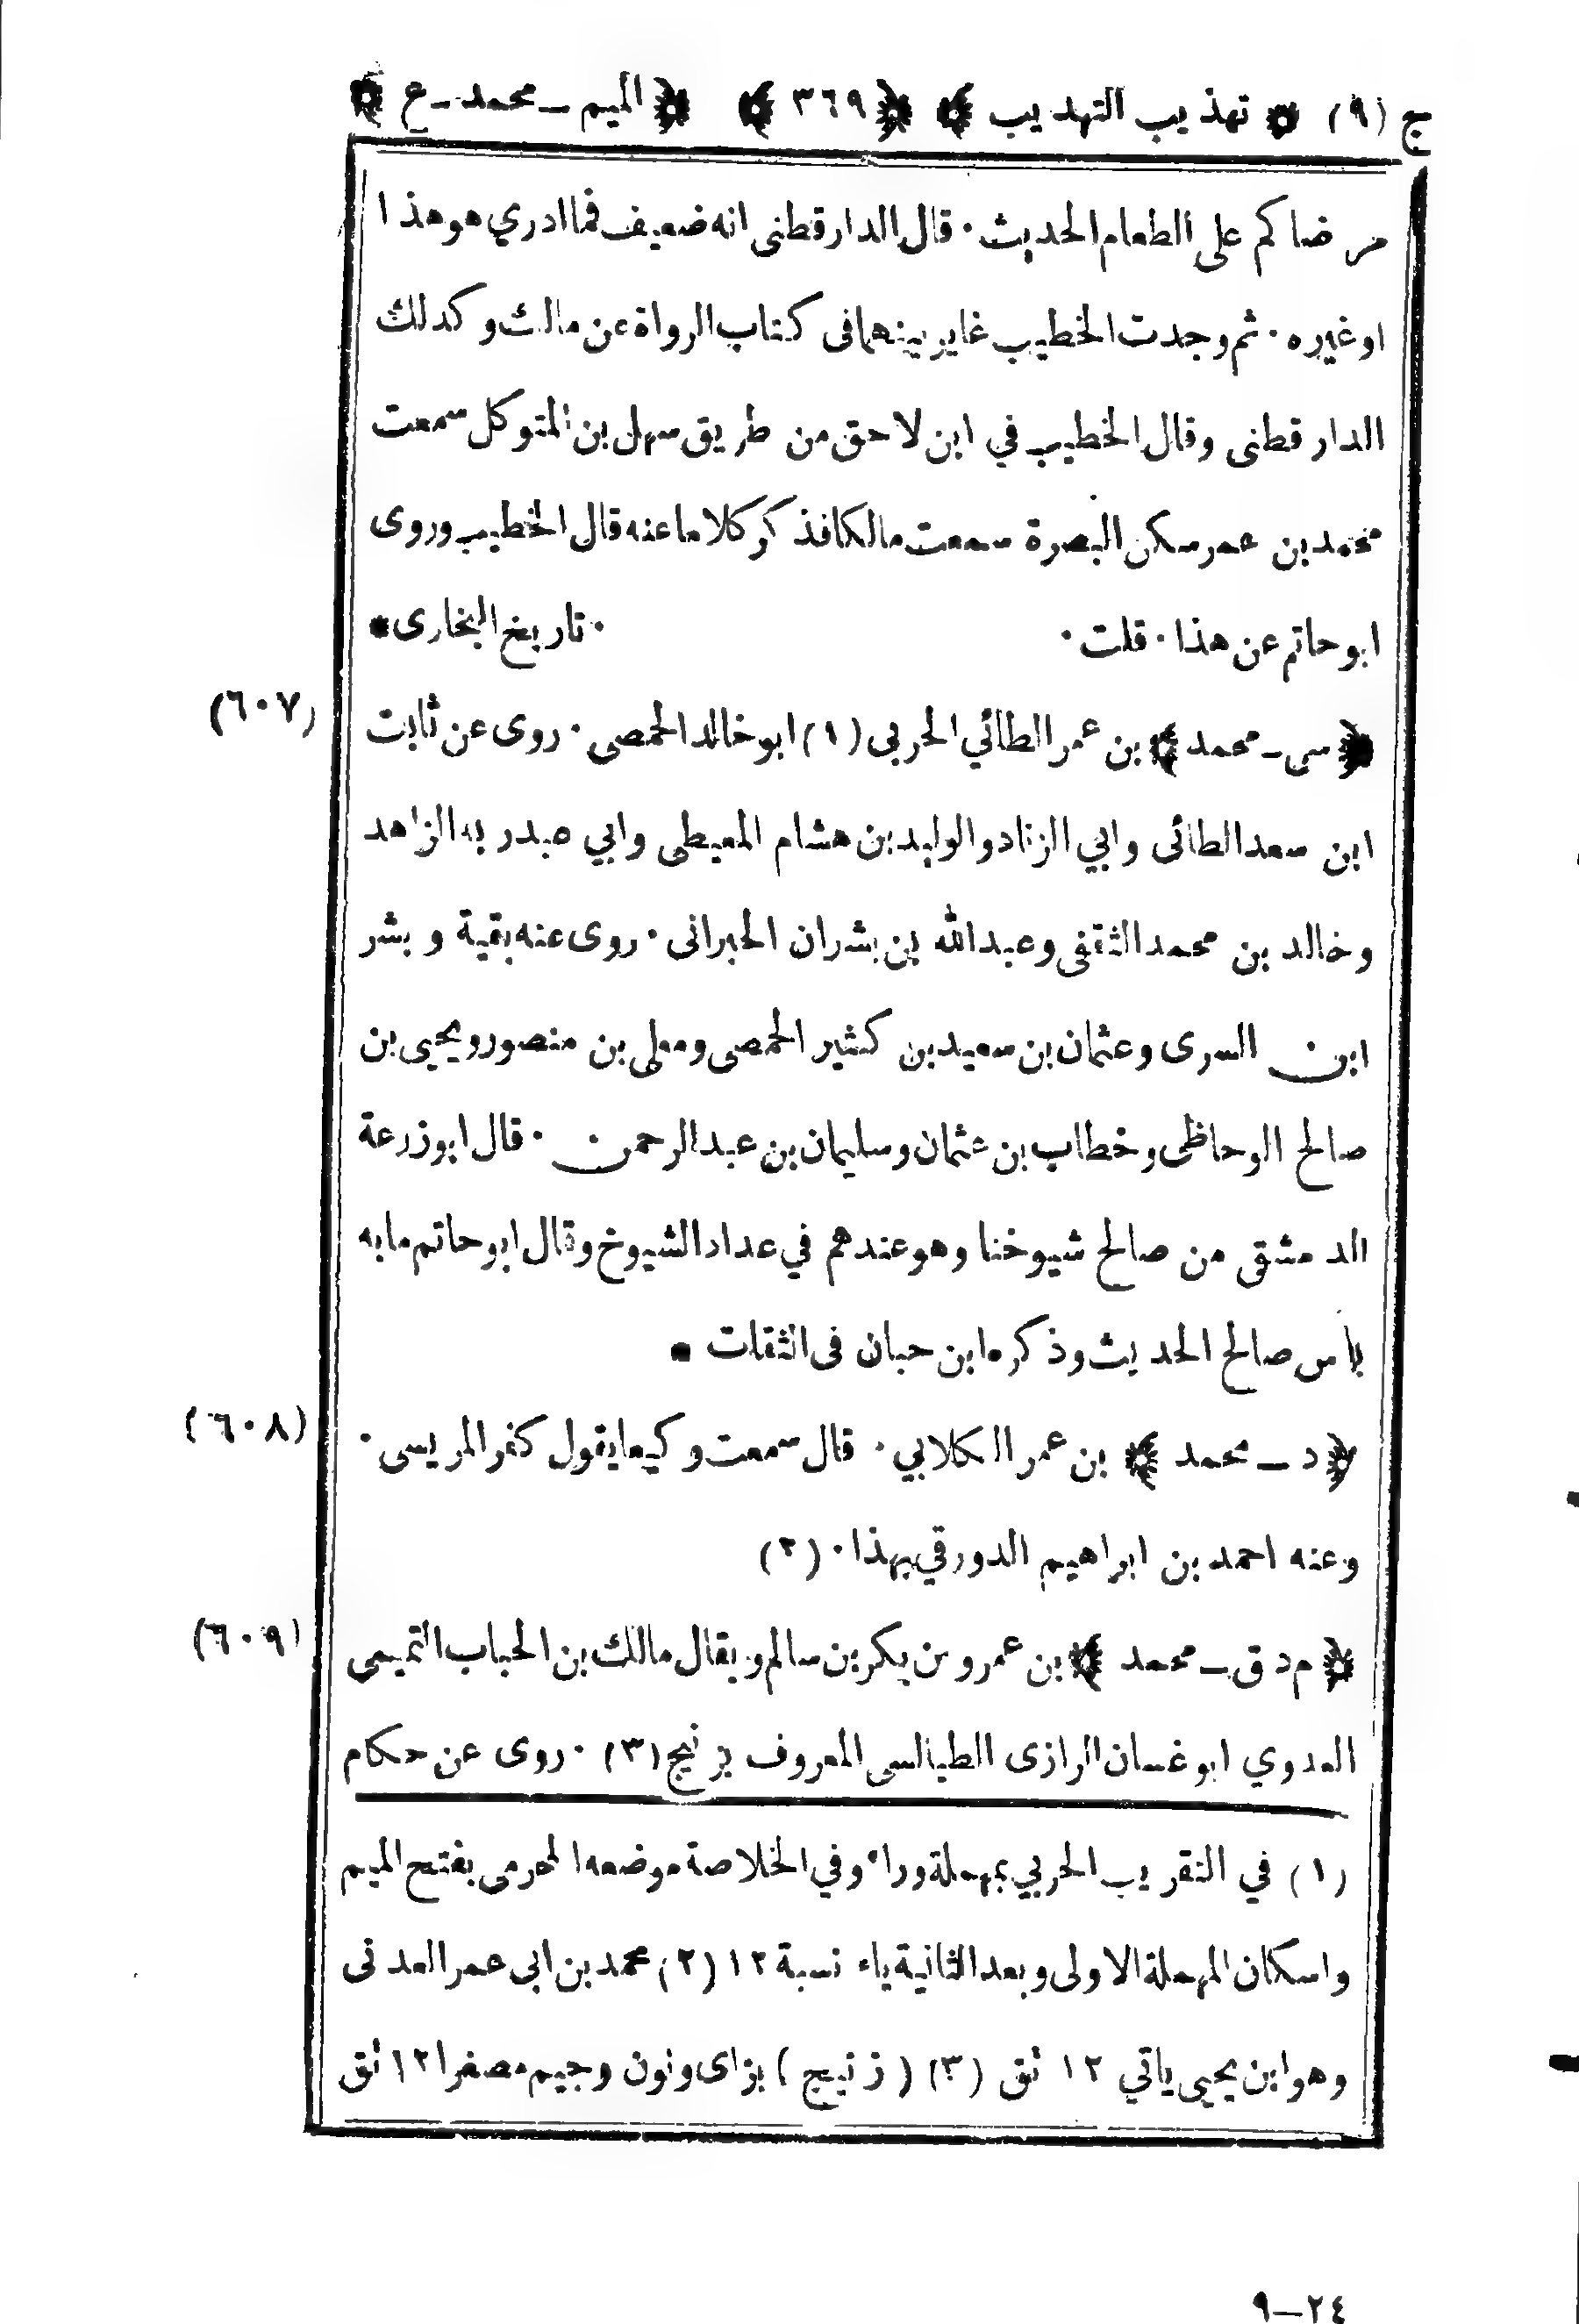 ج (٩) ﴿ تهذيب التهذيب ﴾ ﴿ ٣٦٩ ﴾ ﴿ الميم ـ محمد ـ ع ﴾
مرضاكم على الطعام الحديث · قال الدارقطنى انه ضعيف فما ادري هو هذا
او غيره · ثم وجدت الخطيب غاير بينهما فى كتاب الرواة عن مالك وكذلك
الدارقطنى وقال الخطيب في ابن لاحق من طريق سهل بن المتوكل سمعت
محمد بن عمر سكن البصرة سمعت مالكا فذكر كلاما عنه قال الخطيب وروى
ابو حاتم عن هذا · قلت · · تاريخ البخارى *
(٦٠٧) ﴿ سى ـ محمد ﴾ بن عمر الطائي الحربى (١) ابو خالد الحمصى · روى عن ثابت
ابن سعد الطائى وابي الزناد والوليد بن هشام المعيطى وابي عبد ربه الزاهد
وخالد بن محمد الثقفى وعبد الله بن بشران الحبرانى · روى عنه بقية و بشر
ابن السرى وعثمان بن سعيد بن كثير الحمصى ومعلى بن منصور ويحيى بن
صالح الوحاظى وخطاب بن عثمان وسليمان بن عبد الرحمن · قال ابو زرعة
الدمشقى من صالح شيوخنا وهو عندهم في عداد الشيوخ وقال ابو حاتم ما به
بأس صالح الحديث وذكره ابن حبان فى الثقات *
(٦٠٨) ﴿ د ـ محمد ﴾ بن عمر الكلابي · قال سمعت وكيعا يقول كفر المريسى ·
وعنه احمد بن ابراهيم الدورقي بهذا · (٢)
(٦٠٩) ﴿ م د ق ـ محمد ﴾ بن عمرو بن بكر بن سالم ويقال مالك بن الحباب التميمى
العدوي ابو غسان الرازى الطيالسى المعروف بزنيج (٣) · روى عن حكام
(١) في التقريب الحربي بمهملة وراء وفي الخلاصة موضعه المحرمى بفتح الميم
واسكان المهملة الاولى وبعد الثانية ياء نسبة ١٢ (٢) محمد بن ابى عمر العدنى
وهو ابن يحيى ياتي ١٢ تق (٣) (زنيج) بزاى ونون وجيم مصغرا ١٢ تق
٢٤ـ٩